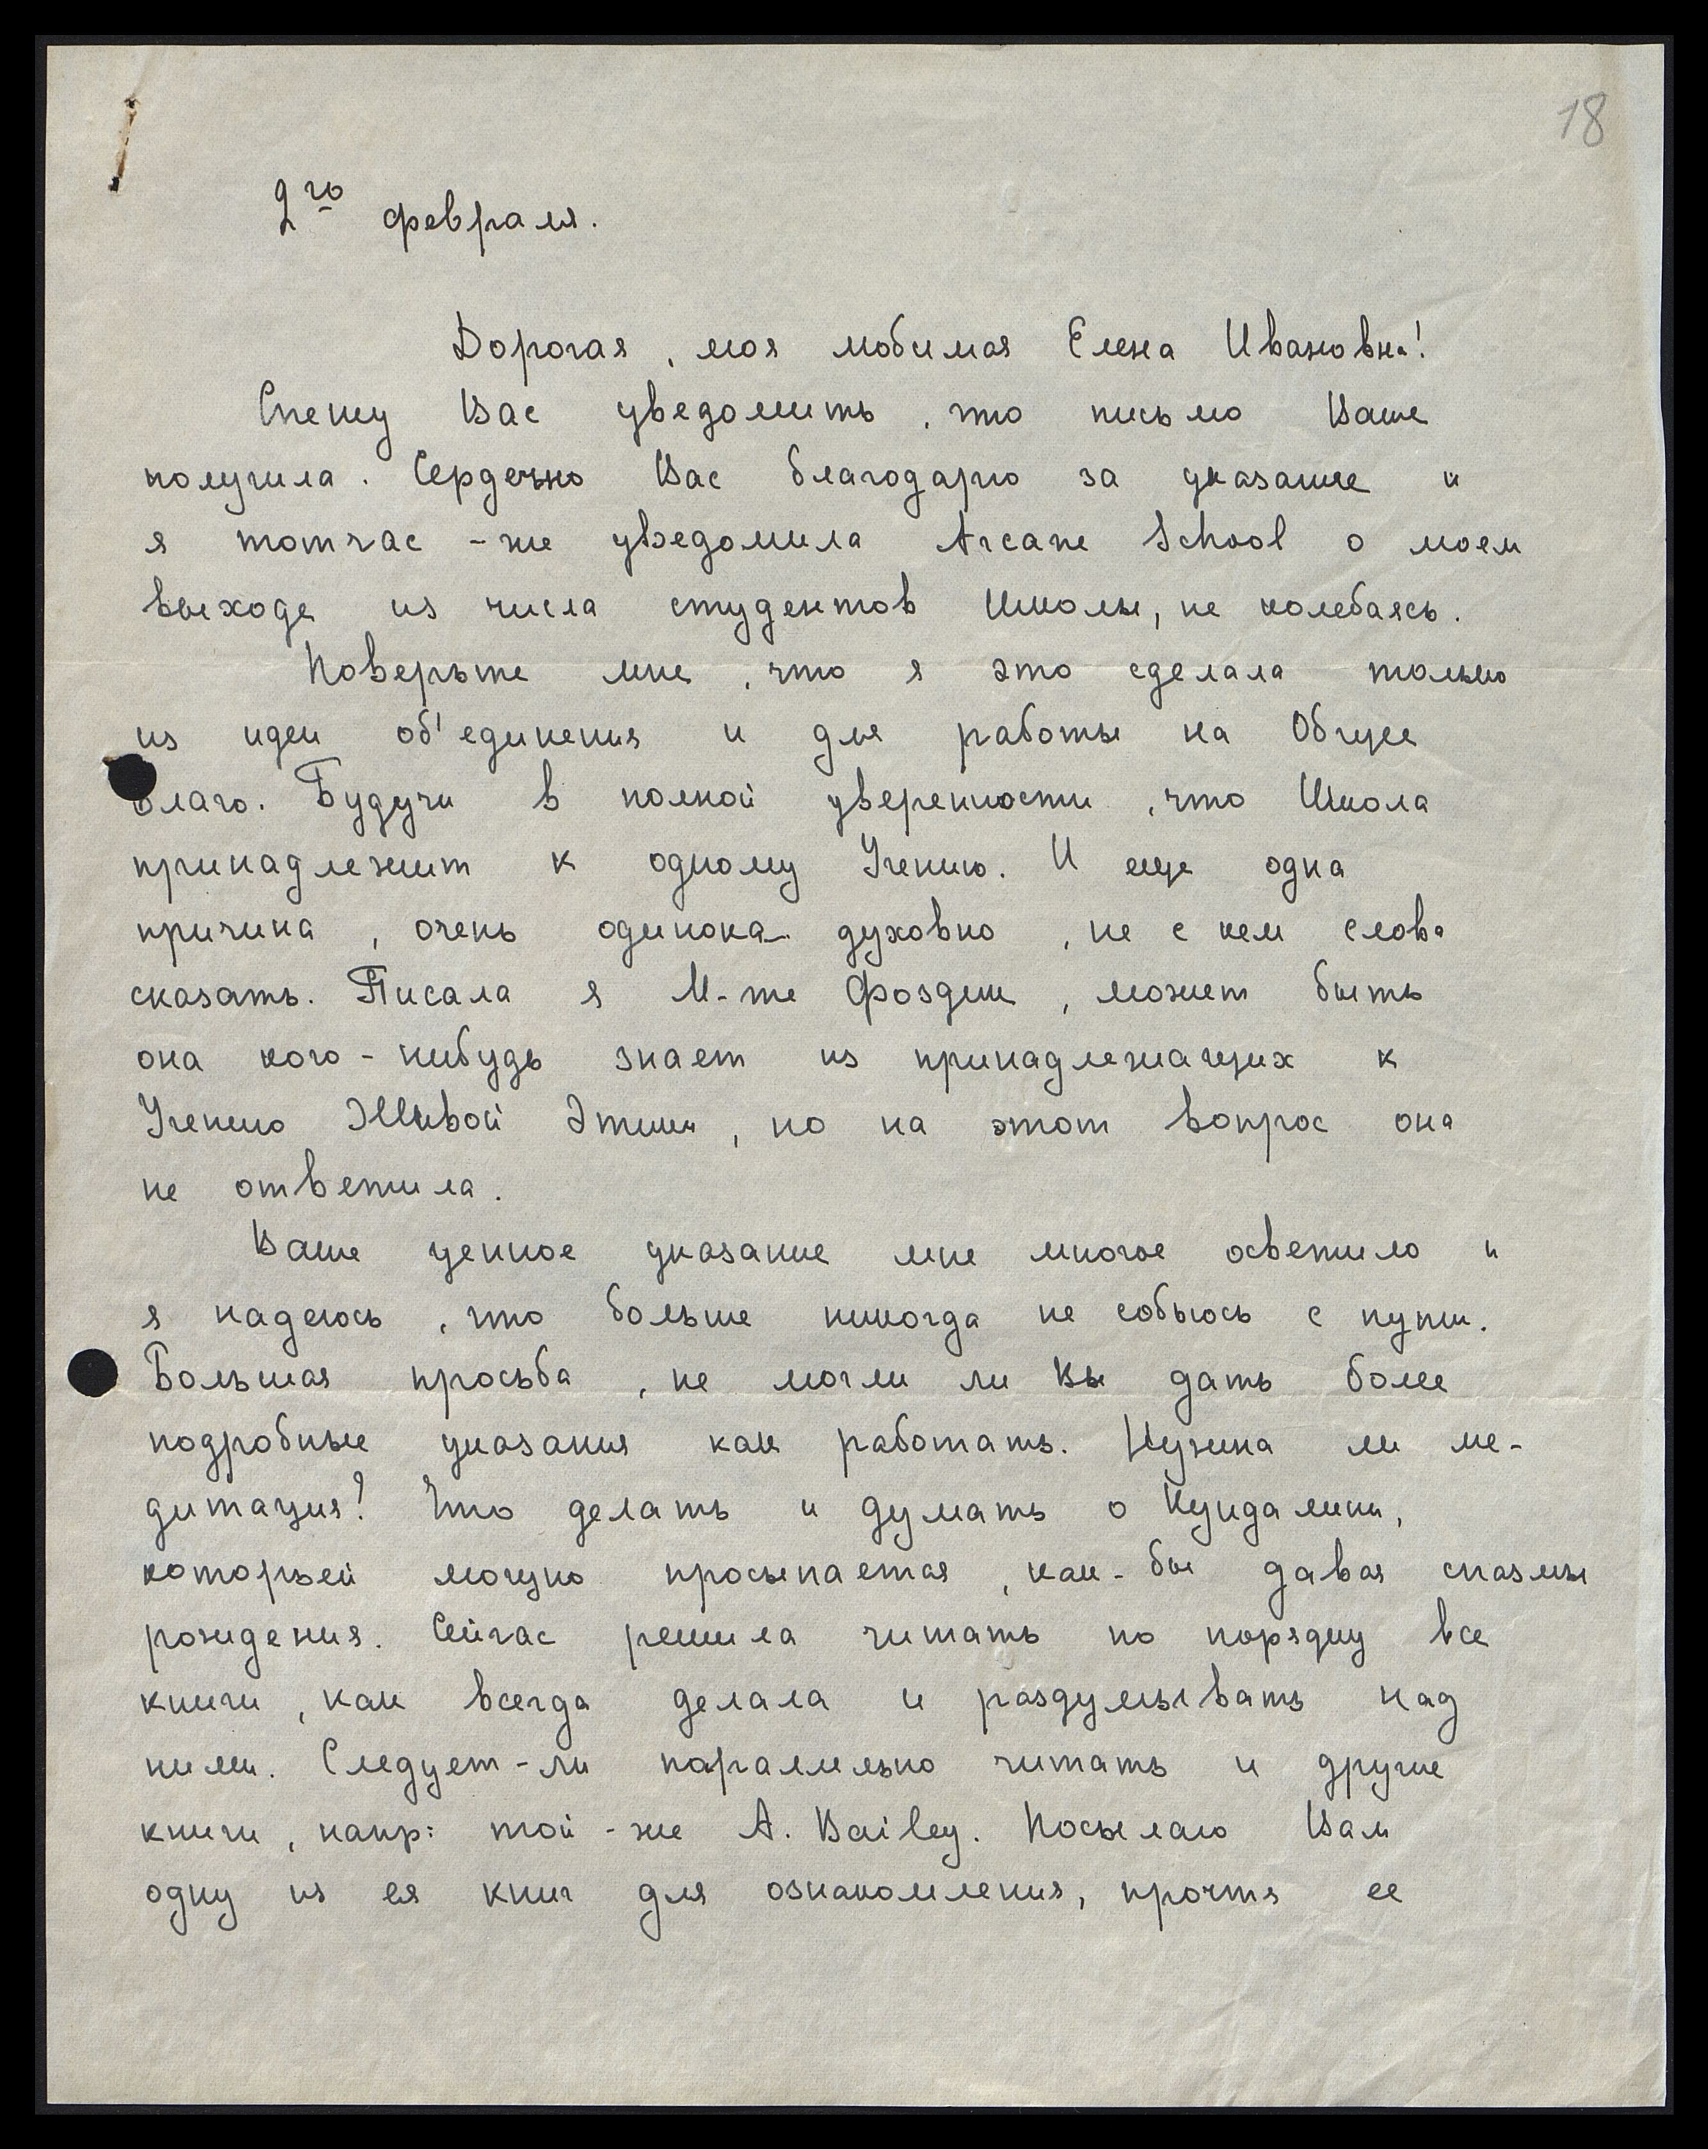 18
2го февраля.
Дорогая, моя любимая Елена Ивановна!
Спешу Вас уведомить, что письмо Ваше
получила. Сердечно Вас благодарю за указание и
я тотчас-же уведомила Arcane School о моем
выходе из числа студентов Школы, не колебаясь.
Поверьте мне, что я это сделала только
из идеи об'единения и для работы на Общее
Благо. Будучи в полной уверенности, что Школа
принадлежит к одному Учению. И еще одна
причина, очень одинока духовно, не с кем слова
сказать. Писала я М-те Фоздик, может быть
она кого-нибудь знает из принадлежащих к
Учению Живой Этики, но на этот вопрос она
не ответила.
Ваше ценное указание мне многое осветило и
я надеюсь, что больше никогда не собьюсь с пути.
Большая просьба, не могли ли Вы дать более
подробные указания как работать. Нужна ли ме-
дитация? Что делать и думать о Кундалини,
который мощно просыпается, как-бы давая спазмы
рождения. Сейчас решила читать по порядку все
книги, как всегда делала и раздумывать над
ними. Следует-ли паралельно читать и другие
книги, напр: той-же A. Bailey. Посылаю Вам
одну из ея книг для ознакомления, прочтя ее